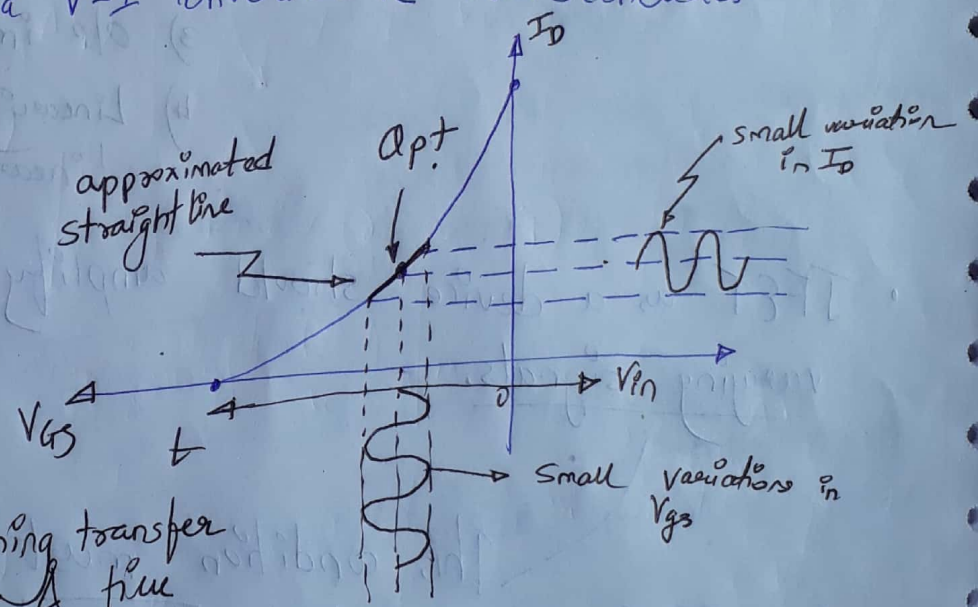 a V-I
I_D
small variation
in I_D
Qpt.
approximated
straight line
V_GS
t
0
Vin
Small variations in
V_gs
transfer